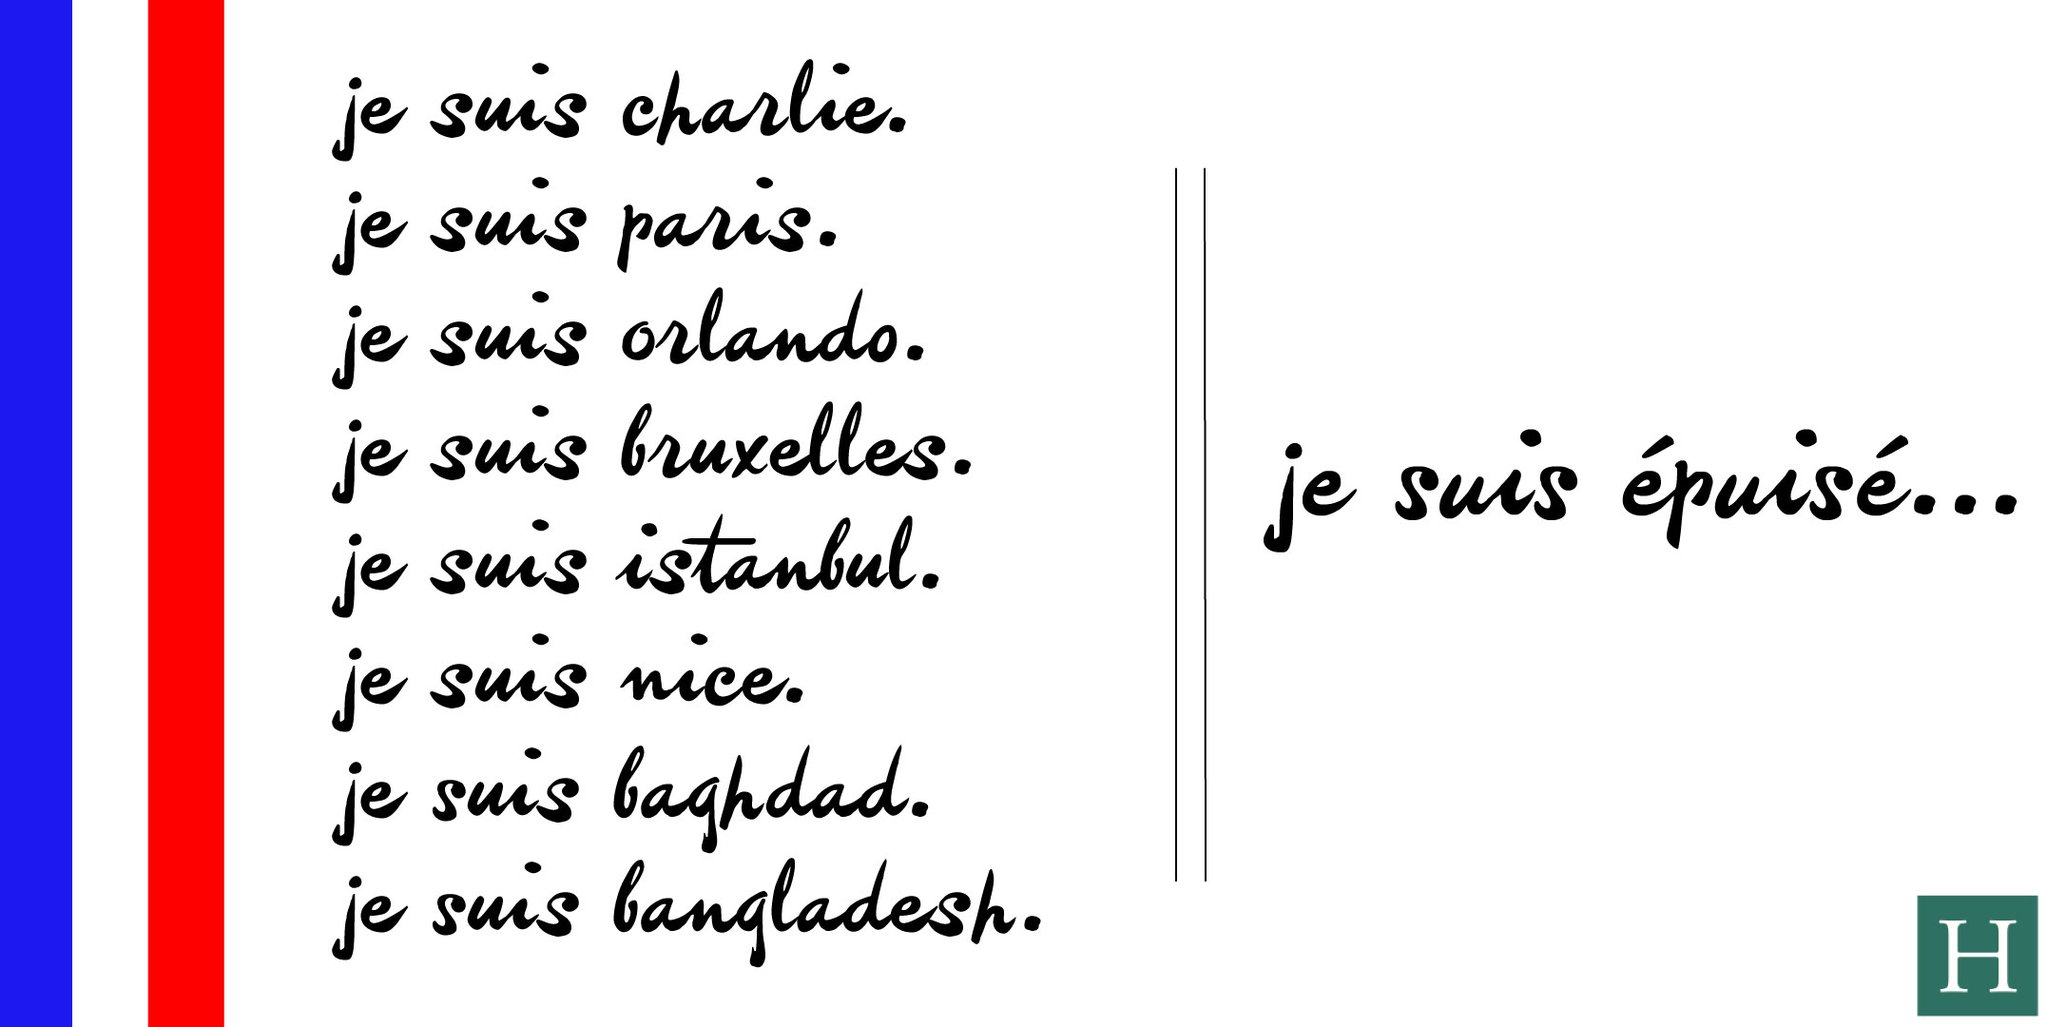 je suis charlie.
je suis paris.
je suis orlando.
je suis bruxelles.
je suis istanbul.
je suis nice.
je suis baghdad.
je suis bangladesh.
je suis épuisé...
H